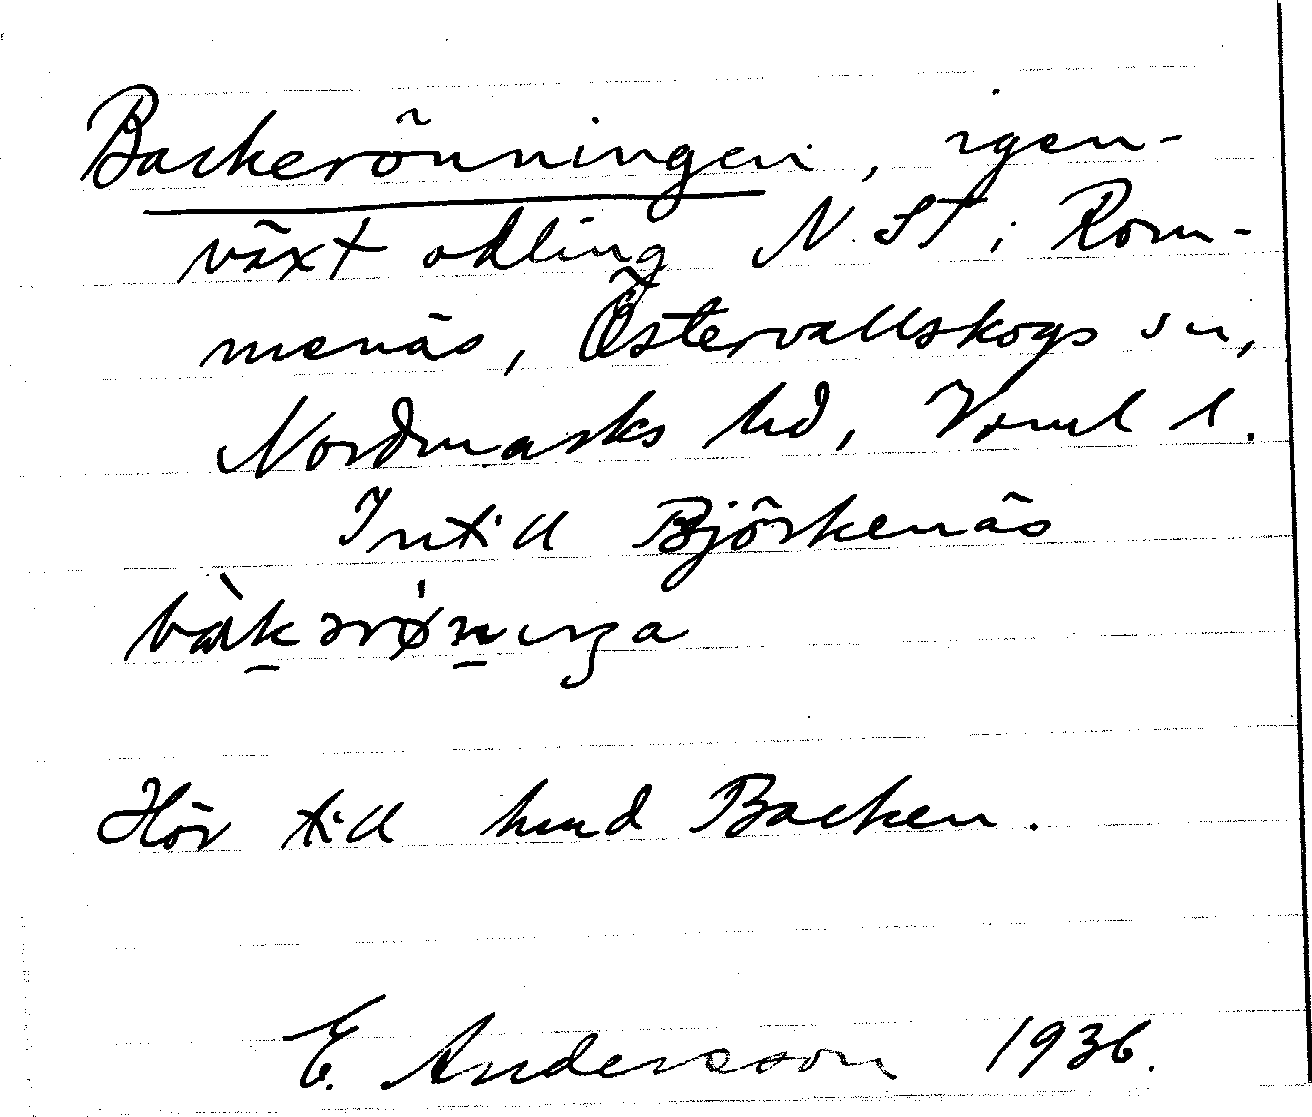 Backerönningen, igen-
växt odling N. St i Rom-
menäs, Östervallskogs sn,
Nordmarks hd, Vrml l.
Intill Björkenäs
Hör till hmd Backen.
E. Andersson 1936.